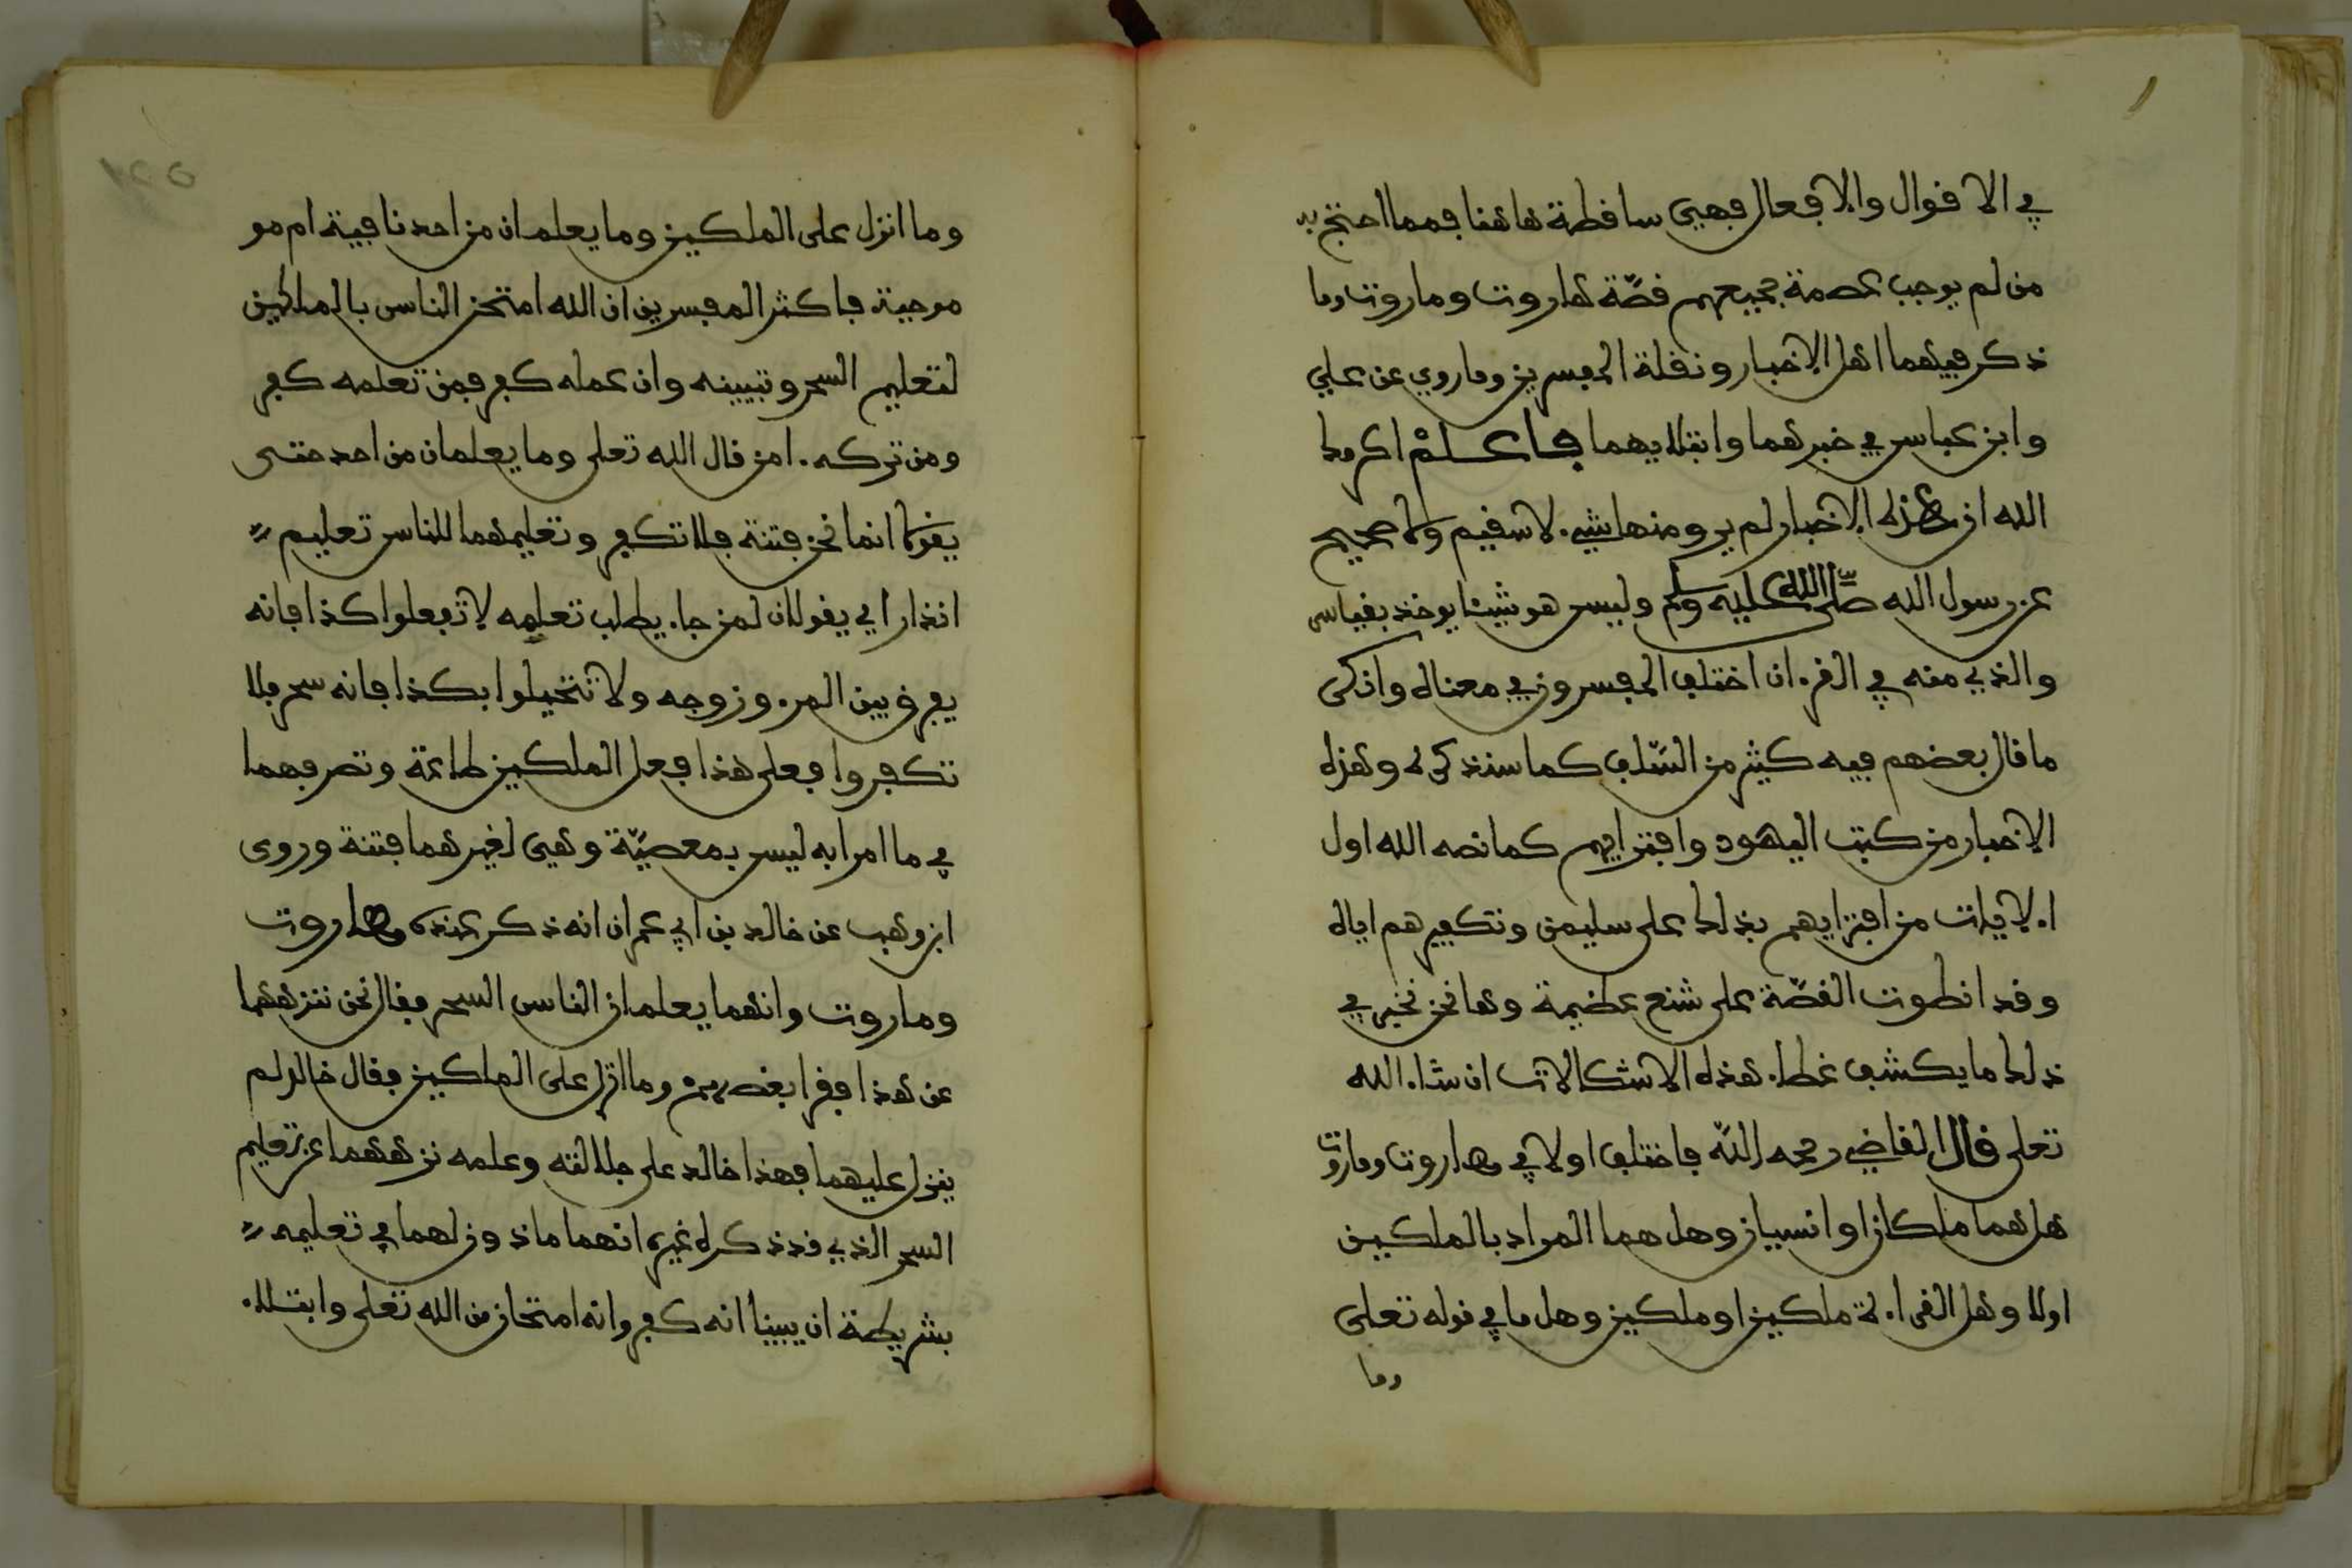 في الاقوال والافعال فهي ساقطة هاهنا فمما احتج به
من لم يوجب عصمة جميعهم قصّة هاروت وماروت وما
ذكر فيهما اهل الاخبار ونقلة المفسرين وما روي عن علي
وابن عباس في خبرهما وابتلايهما فاعلم اكرمك
الله ان هذه الاخبار لم يرو منها شيء لا سقيم ولا صحيح
عن رسول الله صلى الله عليه وسلم وليس هو شيئا يوخذ بقياس
والذي منه في القرءان اختلف المفسرون في معناه وانكر
ما قال بعضهم فيه كثير من السّلف كما سنذكره وهذه
الاخبار من كتب اليهود وافترايهم كما نصه الله اول
الايات من افترايهم بذلك على سليمن وتكفيرهم اياه
وقد انطوت القصّة على شنع عظيمة وها نحن نحبر في
ذلك ما يكشف غطاء هذه الاشكالات ان شاء الله
تعلى قال القاضي رحمه الله فاختلف اولا في هاروت وماروت
هل هما ملكان او انسيان وهل هما المراد بالملكين
اولا وهل القراءة ملكين او ملكين وهل ما في قوله تعلى
وما
١٢٥
وما انزل على الملكين وما يعلمان من احد نافية ام مو
موجبة فاكثر المفسرين ان الله امتحن الناس بالملكين
لتعليم السحر وتبيينه وان عمله كفر فمن تعلمه كفر
ومن تركه ءامن قال الله تعلى وما يعلمان من احد حتى
يقولا انما نحن فتنة فلا تكفر وتعليمهما للناس تعليم
انذار اي يقولان لمن جاء يطلب تعلمه لا تفعلوا كذا فانه
يفرق بين المرء وزوجه ولا تتخيلوا بكذا فانه سحر فلا
تكفروا فعلى هذا فعل الملكين طاعة وتصرفهما
في ما امرا به ليس بمعصيّة وهي لغيرهما فتنة وروى
ابن وهب عن خالد بن ابي عمران انه ذكر عنده هاروت
وماروت وانهما يعلمان الناس السحر فقال نحن ننزههما
عن هذا فقرا بعضهم وما انزل على الملكين فقال خالد لم
ينزل عليهما فهذا خالد على جلالته وعلمه نزههما عن تعليم
السحر الذي قد ذكره غيره انهما ماذون لهما في تعليمه
بشريطة ان يبينا انه كفر وانه امتحان من الله تعلى وابتلاء